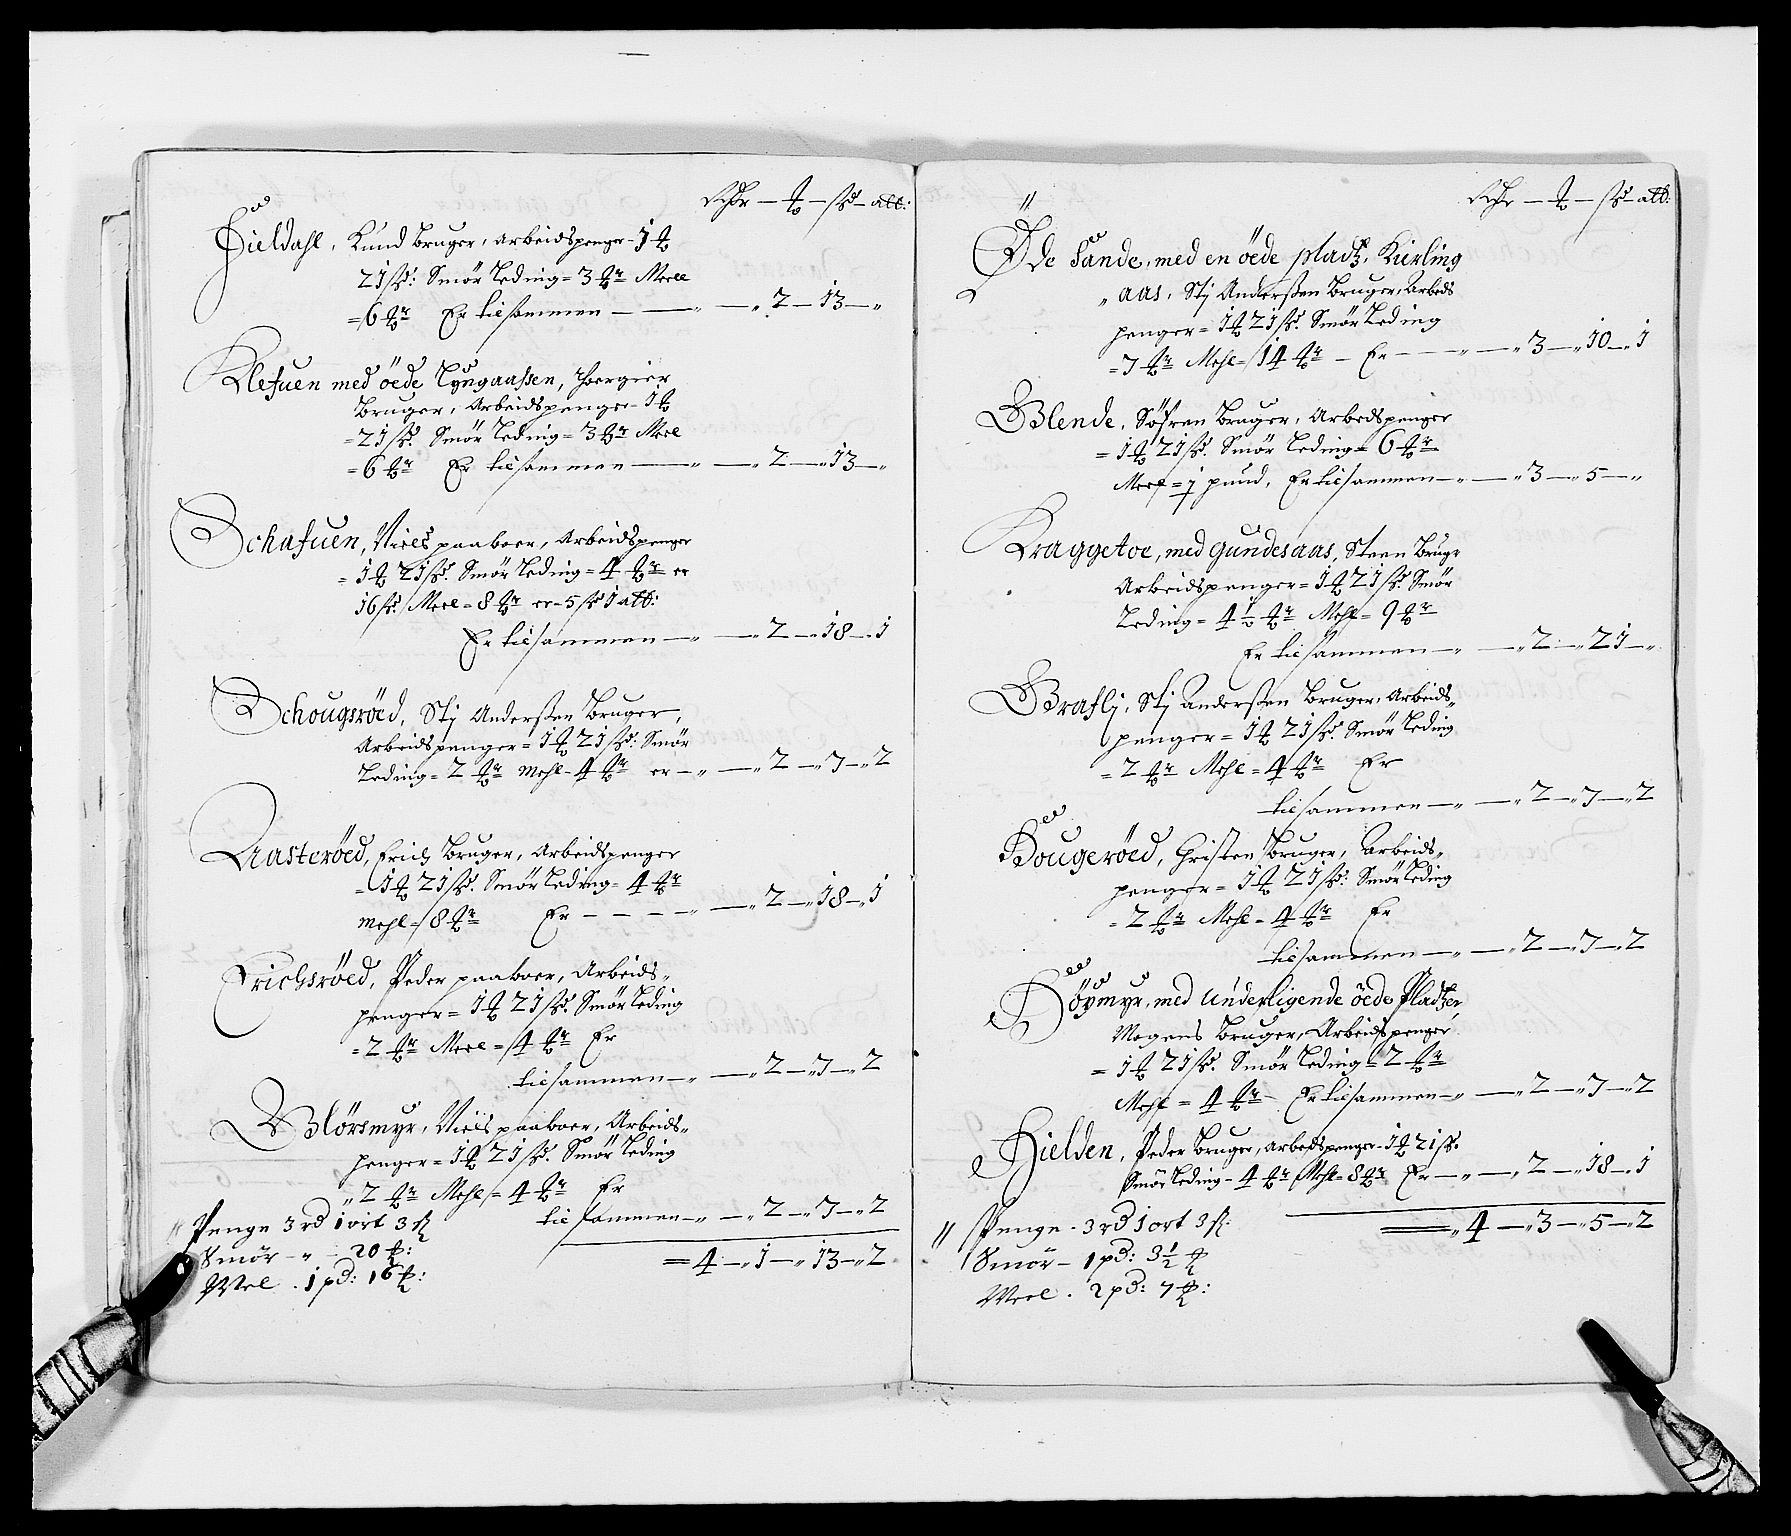 Rdr — ℔ — ſß — alb:
Hieldahl, Knud Bruger, arbeidspenger - 1 ℔
21 ſß: Smör Leding = 3 ℔r Meel
= 6 ℔r Er tilsammen — „ — „ 2 — 13 — „
Klefuen med öede Lyngaassen, Thorgier
Bruger, Arbeidspenger - 1 ℔
= 21 ſß: Smör Leding = 3 ℔r Meel
= 6 ℔r Er tilsammen — „ — „ 2 — „ 13 — „
Schafuen, Niels paaboer, Arbeidspenger
= 1 ℔ 21 ſß: Smör Leding = 4 ℔r er
16 ſß: Meel = 8 ℔r er = 5 ſß 1 alb:
Er tilsammen — „ — „ 2 — „ 18 — „ 1
Schougsröed, Stj Anderßen Bruger,
Arbeidspenger = 1 ℔ 21 ſß: Smör
Leding = 2 ℔r Mehl = 4 ℔r er — „ — „ 2 — „ 7 — „ 2
Aasteröed, Erich Bruger, Arbeidspenger
= 1 ℔ 21 ſß: Smör Leding = 4 ℔r
Mehl = 8 ℔r Er — — — „ — „ 2 — „ 18 — „ 1
Erichsröed, Peder paaboer, Arbeids-
penger = 1 ℔ 21 ſß: Smör Leding
= 2 ℔r Meel = 4 ℔r Er
tilsammen — „ — „ 2 — „ 7 — „ 2
Blörsmyr, Niels paaboer, Arbeids-
penger = 1 ℔ 21 ſß: Smör Leding
„ 2 ℔r Mehl = 4 ℔r Er
tilsammen — „ — „ 2 — „ 7 — „ 2
„ Penge 3 rd 1 ort 3 ß
Smör — „ — 20 ℔:
Mel . 1 pd: 16 ℔:
= 4 — „ 1 — „ 13 — „ 2
Rdr — ℔ — ſß — alb:
Öde Sande, med en öede pladtz, Kierling
„ aas, Stj Anderßen Bruger, Arbeds
penger = 1 ℔ 21 ſß: Smör Leding
= 7 ℔r Mehl = 14 ℔r — Er — — „ — „ 3 — „ 10 — „ 1
Blende, Söfren Bruger, Arbedspenger
= 1 ℔ 21 ſß: Smör Leding = 6 ℔r
Meel = 1 pund, Er tilsammen — „ — „ 3 — „ 5 — „
Kraggetoe, med Gundesaas, Steen Bruger
Arbeidspenger = 1 ℔ 21 ſß: Smör
Leding = 4 ½ ℔r Mehl = 9 ℔r
Er tilsammen — „ — „ 2 — „ 21 — „
Braflj, Stj Anderßen Bruger, Arbeids-
penger = 1 ℔ 21 ſß: Smör Leding
= 2 ℔r Mehl = 4 ℔r Er
tilsammen — „ — „ 2 — „ 7 — „ 2
Hougeröed, Christen Bruger, Arbeids-
penger = 1 ℔ 21 ſß: Smör Leding
= 2 ℔r Mehl = 4 ℔r Er
tilsammen — „ — „ 2 — „ 7 — „ 2
Höymyr, med Underligende öede Pladtzer,
Mogens Bruger, Arbeidspenger
= 1 ℔ 21 ſß: Smör Leding = 2 ℔r
Mehl = 4 ℔r Er tilsammen — „ — „ 2 — „ 7 — „ 2
Hielden, Peder Bruger, arbedspenger - 1 ℔ 21 ſß.
Smör Leding - 4 ℔r Mehl = 8 ℔r Er — „ — „ 2 — „ 18 — „ 1
„ Penge . 3 rd 1 ort 3 ß.
= „ 4 — „ 3 — „ 5 — „ 2
Smör — 1 pd: 3 ½ ℔
Meel . 2 pd: 7 ℔: